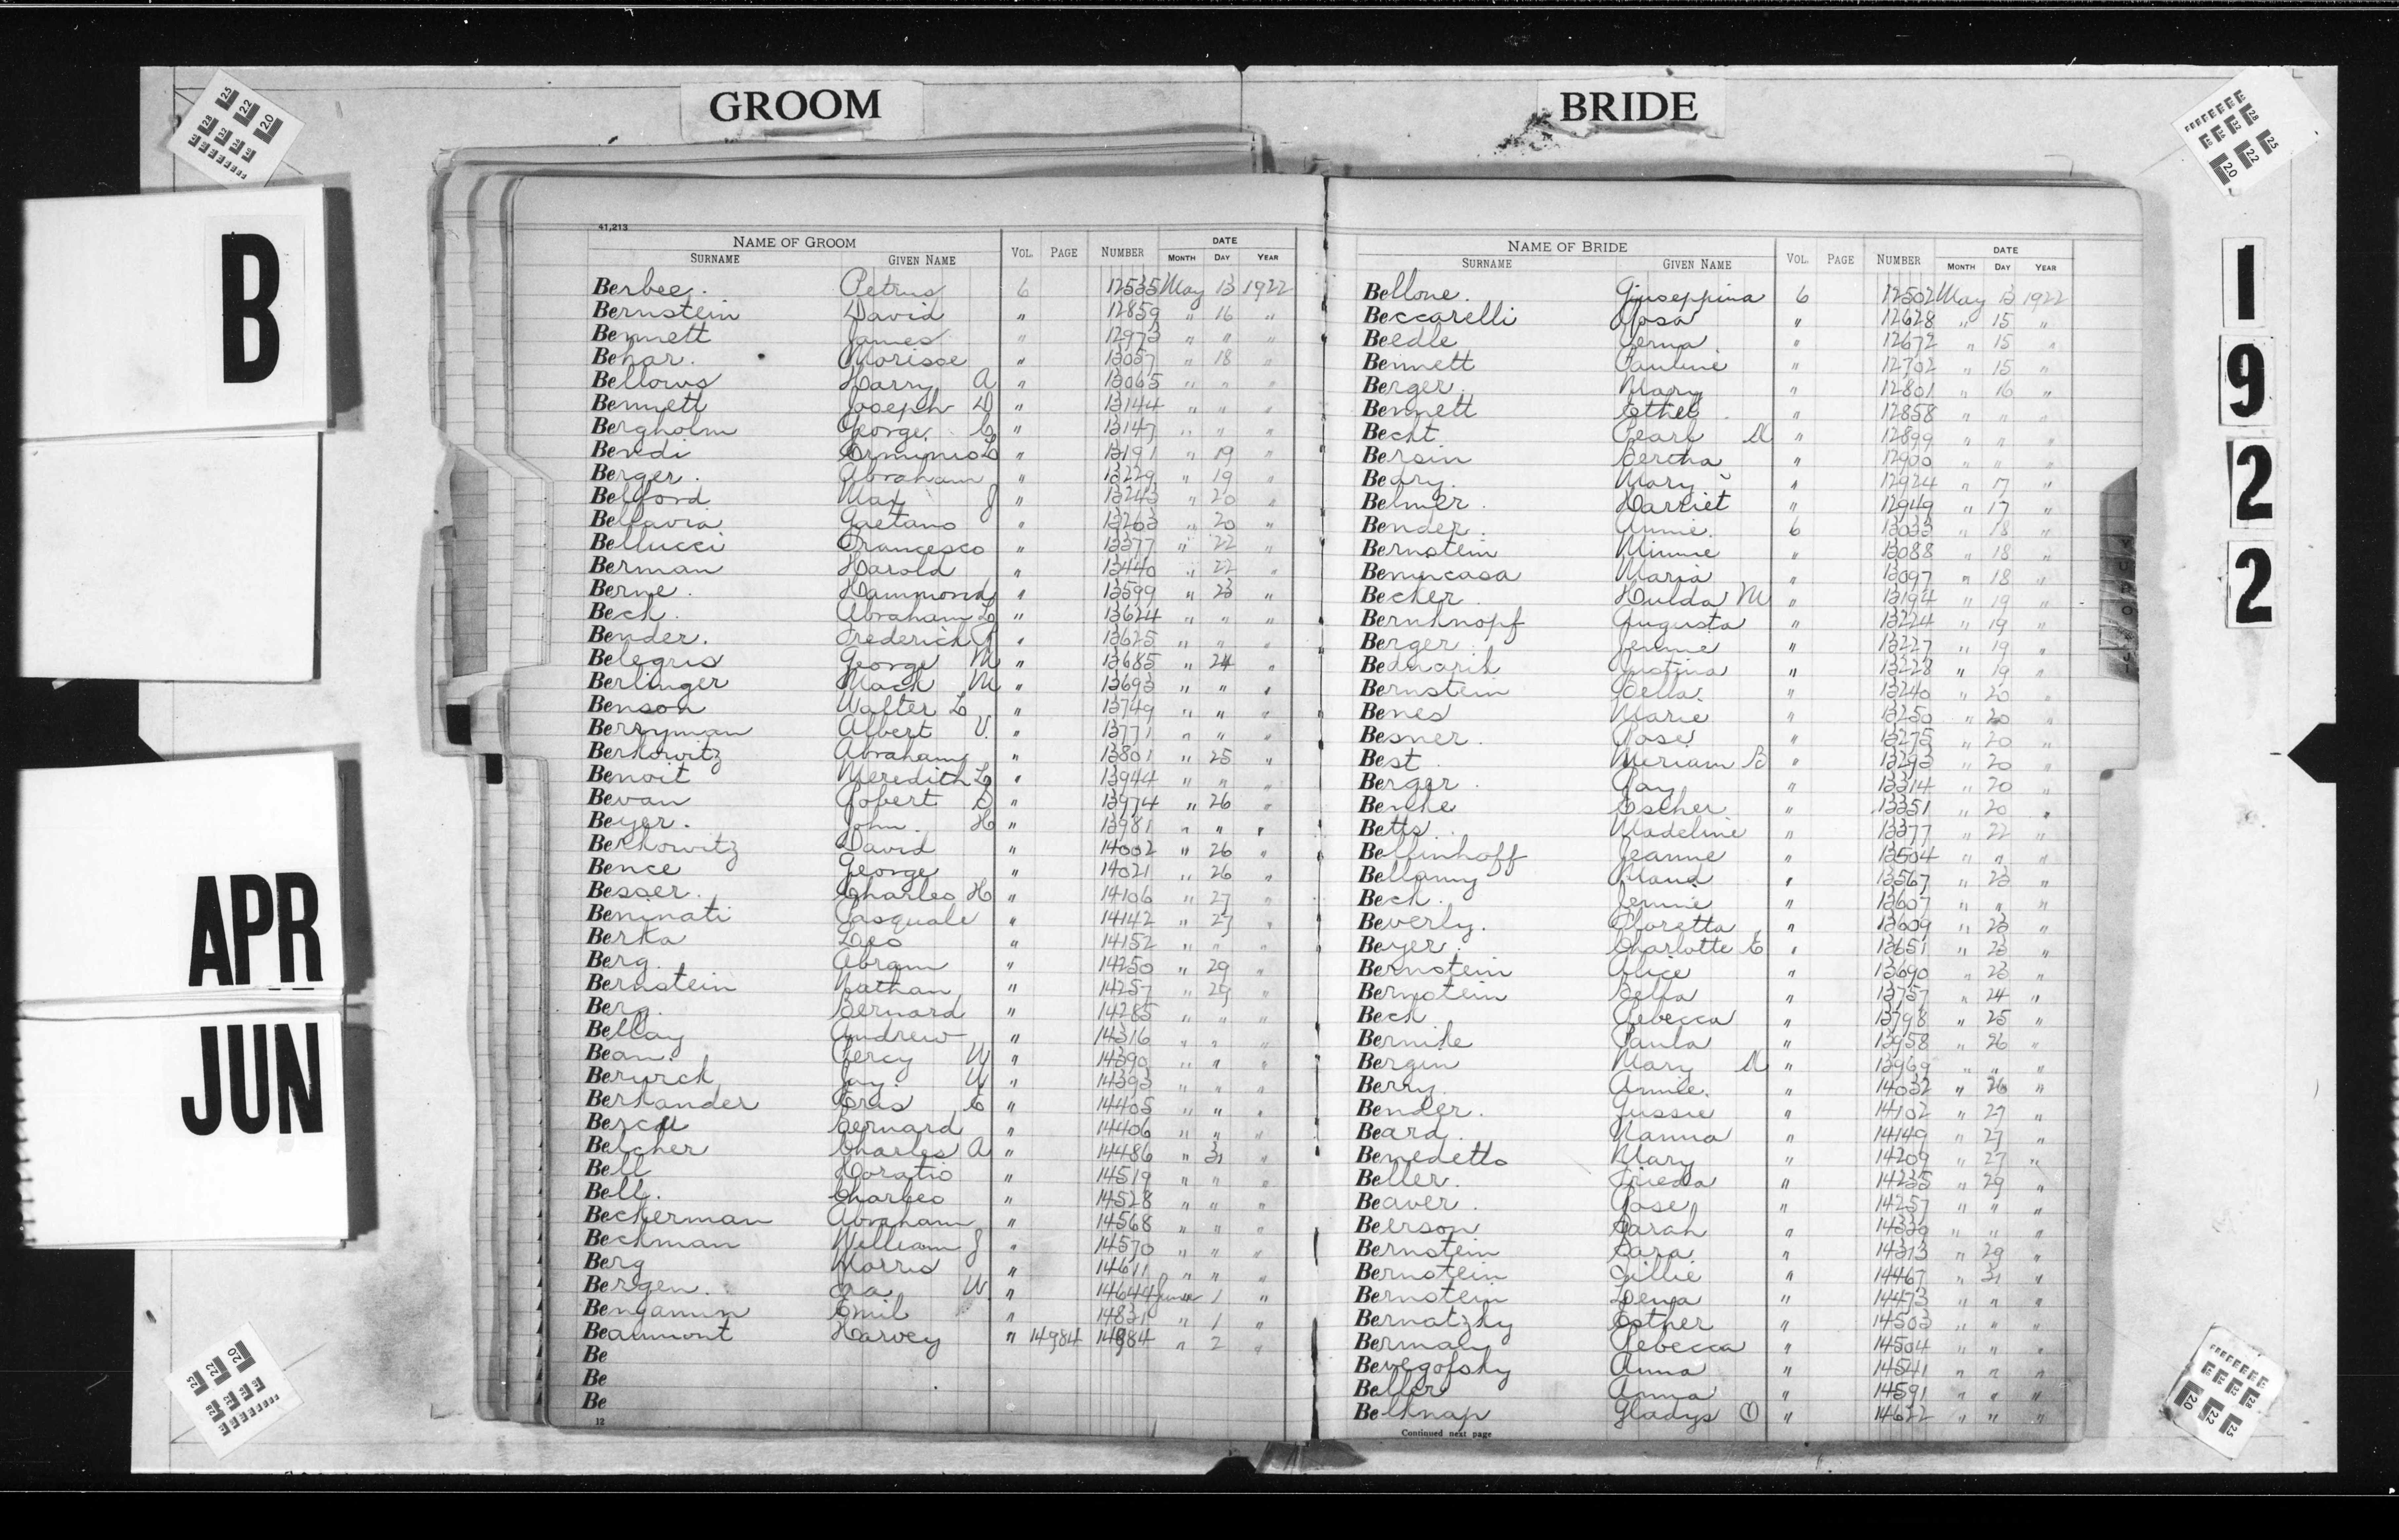 GROOM
BRIDE
B
APR
JUN
1
9
2
2
41,213
NAME OF GROOM
SURNAME GIVEN NAME VOL. PAGE NUMBER DATE MONTH DAY YEAR
Berbee. Petrus 6 12535 May 13 1922
Bernstein David " 12859 " 16 "
Bennett James " 12973 " " "
Behar. Morisse " 13057 " 18 "
Bellows Harry A " 13065 " " "
Bennett Joseph D " 13144 " " "
Bergholm George C " 13147 " " "
Bendi Erminio L " 13191 " 19 "
Berger. Abraham " 13229 " 19 "
Belford Max J " 13243 " 20 "
Bellavia Gaetano " 13263 " 20 "
Bellucci Francesco " 13377 " 22 "
Berman Harold " 13440 " 22 "
Berne. Hammond " 13599 " 23 "
Beck. Abraham L " 13624 " " "
Bender. Frederick " 13625 " " "
Belegris George M " 13685 " 24 "
Berlinger Mack M " 13693 " " "
Benson Walter L " 13749 " " "
Berryman Albert V. " 13771 " " "
Berkowitz Abraham " 13801 " 25 "
Benoit Meredith L " 13944 " " "
Bevan Robert D " 13974 " 26 "
Beyer. John. H " 13981 " " "
Berkowitz David " 14002 " 26 "
Bence George " 14021 " 26 "
Besser. Charles H " 14106 " 27 "
Beninati Pasquale " 14142 " 27 "
Berka Leo " 14152 " " "
Berg. Abram " 14250 " 29 "
Bernstein Nathan " 14257 " 29 "
Berg. Bernard " 14285 " " "
Bellay Andrew " 14316 " " "
Bean. Percy W " 14390 " " "
Jay. W " 14393 " " "
Berkander Eris E " 14405 " " "
Bercu Bernard " 14406 " " "
Belcher Charles A " 14486 " 31 "
Bell Horatio " 14519 " " "
Bell. Charles " 14528 " " "
Beckerman Abraham " 14568 " " "
Beckman William J " 14570 " " "
Berg Morris " 14611 " " "
Bergen. Ira W " 14644 June 1 "
Bengamin Emil " 14831 " 1 "
Beaumont Harvey " 14984 14984 " 2 "
Be
Be
Be
12
NAME OF BRIDE
SURNAME GIVEN NAME VOL. PAGE NUMBER DATE MONTH DAY YEAR
Bellone. Giuseppina 6 12502 May 13 1922
Beccarelli Rosa " 12628 " 15 "
Beedle Verna " 12672 " 15 "
Bennett Pauline " 12702 " 15 "
Berger. Mary " 12801 " 16 "
Bennett Ethel " 12858 " " "
Becht Pearl M " 12899 " " "
Bersin Bertha " 12900 " " "
Beary. Mary " 12924 " 17 "
Belmer. Harriet " 12949 " 17 "
Bender. Annie. 6 13033 " 18 "
Bernstein Minnie " 13088 " 18 "
Benincasa Maria " 13097 " 18 "
Becker Hulda M " 13194 " 19 "
Bernknopf Augusta " 13224 " 19 "
Berger. Jennie " 13227 " 19 "
Bednarik Justina " 13228 " 19 "
Bernstein Bella. " 13240 " 20 "
Benes Marie " 13250 " 20 "
Besner. Rose " 13275 " 20 "
Best Miriam B " 13293 " 20 "
Berger. Ray " 13314 " 20 "
Benke Escher " 13351 " 20 "
Betts. Madeline " 13377 " 22 "
Bellinhoff Jeanne " 13504 " " "
Bellamy Maud " 13567 " 23 "
Beck. Jennie " 13607 " " "
Beverly. Floretta " 13609 " 23 "
Beyer. Charlotte E " 13651 " 23 "
Bernstein Alice " 13690 " 23 "
Bernstein Bella " 13757 " 24 "
Beck Rebecca " 13798 " 25 "
Paula " 13958 " 26 "
Bergin Mary M " 13969 " " "
Berry. Annie. " 14032 " 26 "
Bender. Gussie " 14102 " 27 "
Beard. Nanna " 14149 " 27 "
Benedetto Mary " 14209 " 27 "
Beller. Frieda " 14235 " 29 "
Beaver. Rose " 14257 " " "
Beerson Sarah " 14339 " " "
Bernstein Sara " 14313 " 29 "
Bernstein Tillie " 14467 " 31 "
Bernstein Lena " 14473 " " "
Bernatzky Esther " 14503 " " "
Berman Rebecca " 14504 " " "
Benegofsky Anna " 14541 " " "
Beller Anna " 14591 " " "
Belknap Gladys Y " 14622 " " "
Continued next page